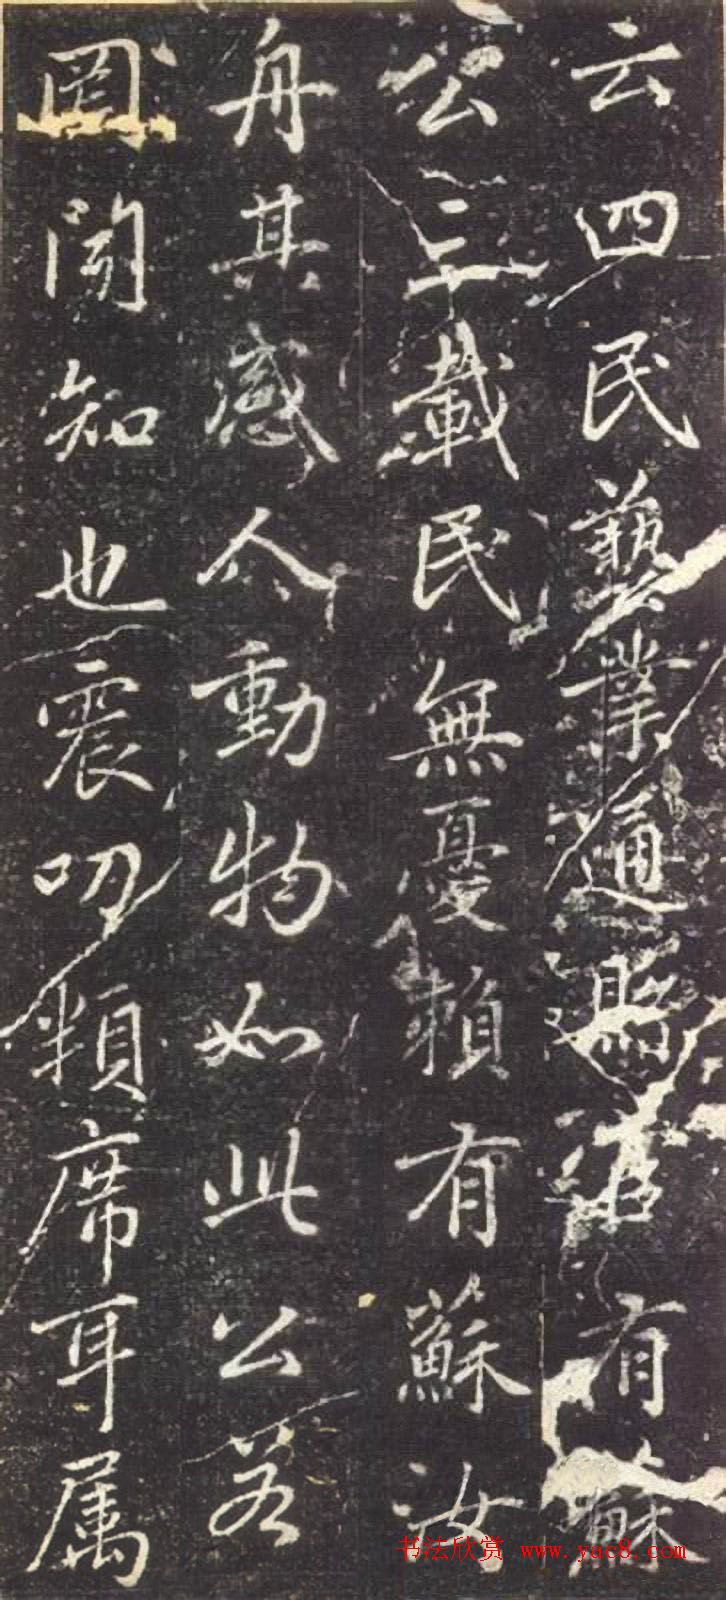 云四民藝業通照得有蘇
公三載民無憂賴有蘇汝
舟其感人動物如此公若
罔聞知也震叨頻席耳属
书法欣赏 www.yac8.com